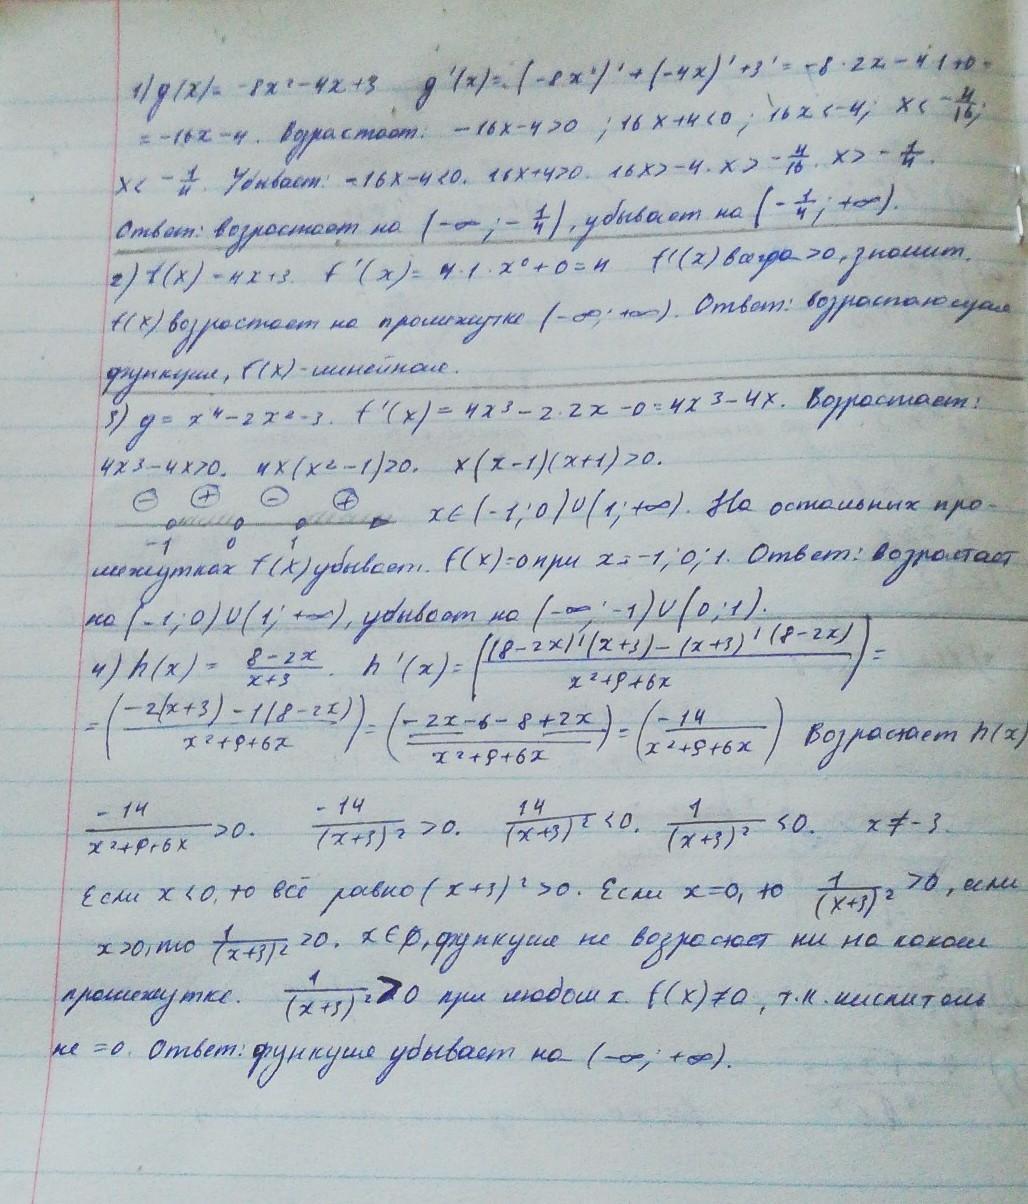 1) g(x)= -8x²-4x+3 g'(x)= (-8x²)'+(-4x)'+3'= -8·2x-4·1+0=
= -16x-4. Возрастает: -16x-4>0; 16x+4<0; 16x<-4; x<-4/16;
x<-1/4. Убывает: -16x-4<0. 16x+4>0. 16x>-4. x>-4/16. x>-1/4.
Ответ: возрастает на (-∞;-1/4), убывает на (-1/4;+∞).
2) f(x)=4x+3. f'(x)= 4·1·x⁰+0=4 f'(x) всегда >0, значит.
f(x) возрастает на промежутке (-∞;+∞). Ответ: возрастающая
функция, f(x)-линейная.
3) y= x⁴-2x²-3. f'(x)= 4x³-2·2x-0=4x³-4x. Возрастает:
4x³-4x>0. 4x(x²-1)>0. x(x-1)(x+1)>0.
- + - +
-1 0 1 x∈(-1;0)∪(1;+∞). На остальных про-
межутках f(x) убывает. f(x)=0 при x=-1;0;1. Ответ: возрастает
на (-1;0)∪(1;+∞), убывает на (-∞;-1)∪(0;1).
4) h(x)= (8-2x)/(x+3). h'(x)= (((8-2x)'(x+3)-(x+3)'(8-2x))/(x²+9+6x))=
=((-2(x+3)-1(8-2x))/(x²+9+6x))=((-2x-6-8+2x)/(x²+9+6x))=(-14/(x²+9+6x)) Возрастает h(x)
-14/(x²+9+6x)>0. -14/(x+3)²>0. 14/(x+3)²<0. 1/(x+3)²<0. x≠-3.
Если x<0, то всё равно (x+3)²>0. Если x=0, то 1/(x+3)²>0, если
x>0, то 1/(x+3)²>0. x∈∅, функция не возрастает ни на каком
промежутке. 1/(x+3)²>0 при любом x. f(x)≠0, т.к. числитель
не =0. Ответ: функция убывает на (-∞;+∞).